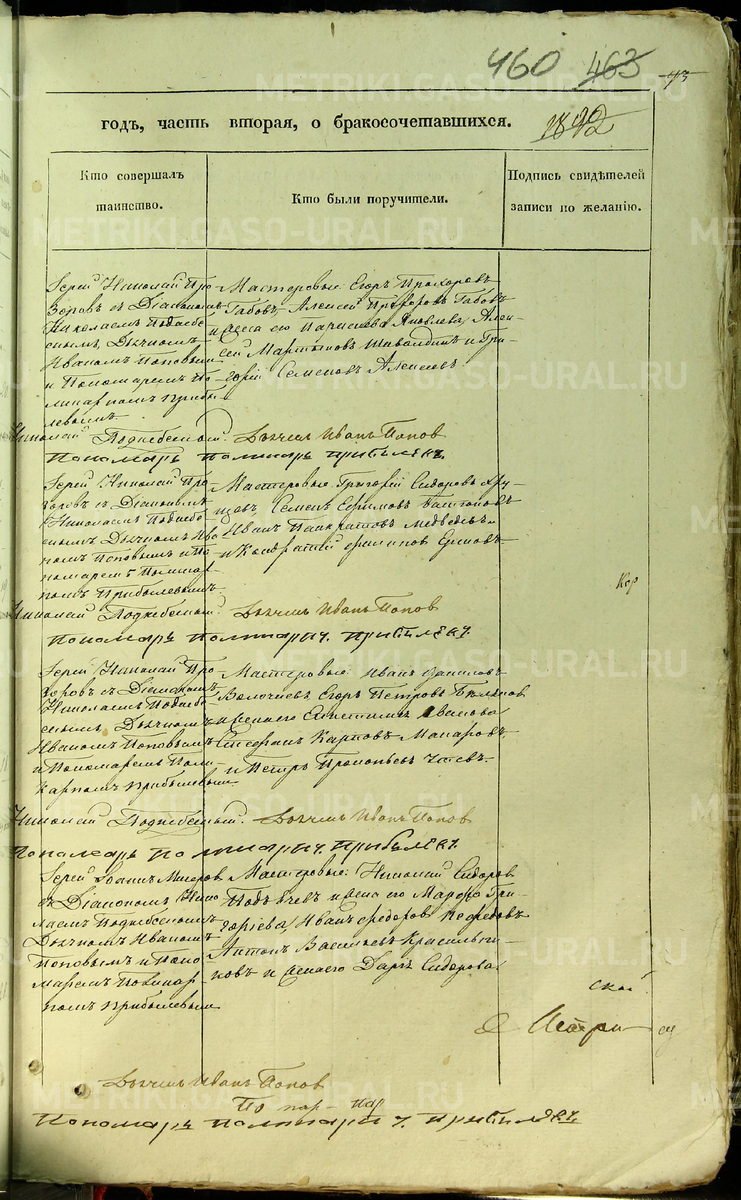 460 463
годъ, часть вторая, о бракосочетавшихся. 1842
Кто совершалъ
таинство.
Кто были поручители.
Подпись свидѣтелей
записи по желанію.
Іерей Николай Про-
зоровъ съ Діакономъ
Николаемъ Поднебе-
снымъ, Дьячкомъ
Иваномъ Поповымъ
и Пономаремъ По-
ликарпомъ Прибы-
левымъ.
Мастеровые: Егоръ Прохоровъ
Габовъ, Алексей Прохоровъ Габовъ
и жена его Яковлева, Алек-
сей Мартыновъ и Гри-
горій Семеновъ Алексеевъ.
Николай Поднебесный. Дьячекъ Иванъ Поповъ
Пономарь Поликарпъ Прибылевъ.
Іерей Николай Про-
зоровъ съ Діакономъ
Николаемъ Поднебе-
снымъ Дьячкомъ Ива-
номъ Поповымъ и По-
номаремъ Поликар-
помъ Прибылевымъ
Мастеровые: Григорій Сидоровъ
Семенъ Ефимовъ
Иванъ Панкратовъ Медведевъ
и Кондратий Филиповъ Ершовъ
Николай Поднебесный. Дьячекъ Иванъ Поповъ
Пономарь Поликарпъ Прибылевъ.
Іерей Николай Про-
зоровъ съ Діакономъ
Николаемъ Поднебе-
снымъ, Дьячкомъ
Иваномъ Поповымъ
и Пономаремъ Поли-
карпомъ Прибылевым
Мастеровые: Иванъ Даниловъ
Егоръ Петровъ
и жена его Иванова
Стефанъ Карповъ Макаровъ
и Петръ Прокопьевъ
Николай Поднебесный. Дьячекъ Иванъ Поповъ
Пономарь Поликарпъ Прибылевъ.
Іерей Іоаннъ
съ Діакономъ Нико-
лаемъ Поднебеснымъ
Дьячкомъ Иваномъ
Поповымъ и Поно-
маремъ Поликар-
помъ Прибылевым
Мастеровые: Николай Сидоровъ
и жена его Марфа Гри-
горіева, Иванъ Федоровъ
Антонъ Васильевъ Красильни-
ковъ и жена его Дарья Сидорова
Кор
ской
Дьячекъ Иванъ Поповъ
Пономарь Поликарпъ Прибылевъ
METRIKI.GASO-URAL.RU